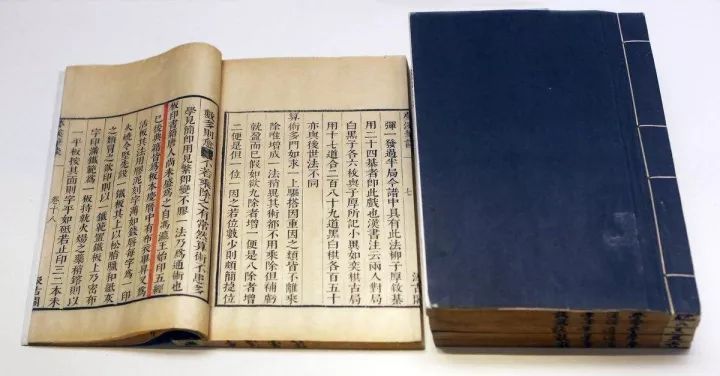 彈一發過半局今譜中具有此法柳子厚敘棊
用二十四棊者即此戲也漢書注云兩人對局
白黑子各六枚與子厚所記小異如奕棋古局
用十七道合二百八十九道黑白棋各百五十
亦與後世法不同
算術多門如求一上驅搭因重因之類皆不離乘
除唯增成一法稍異其術都不用乘除但補虧
就盈而已假如欲九除者增一便是八除者增
二便是但一位一因之若位數少則頗簡捷位
七
數多則愈繁不若乘除之有常然算術不患多
學見簡即用見繁即變不膠一法乃為通術也
板印書籍唐人尚未盛為之自馮瀛王始印五經
已後典籍皆為板本慶曆中有布衣畢昇又為
活板其法用膠泥刻字薄如錢脣每字為一印
火燒令堅先設一鐵板其上以松脂臘和紙灰
之類冒之欲印則以一鐵範置鐵板上乃密布
字印滿鐵範為一板持就火煬之藥稍鎔則以
一平板按其面則字平如砥若止印三二本未
夢溪筆談
卷十八
汲古閣